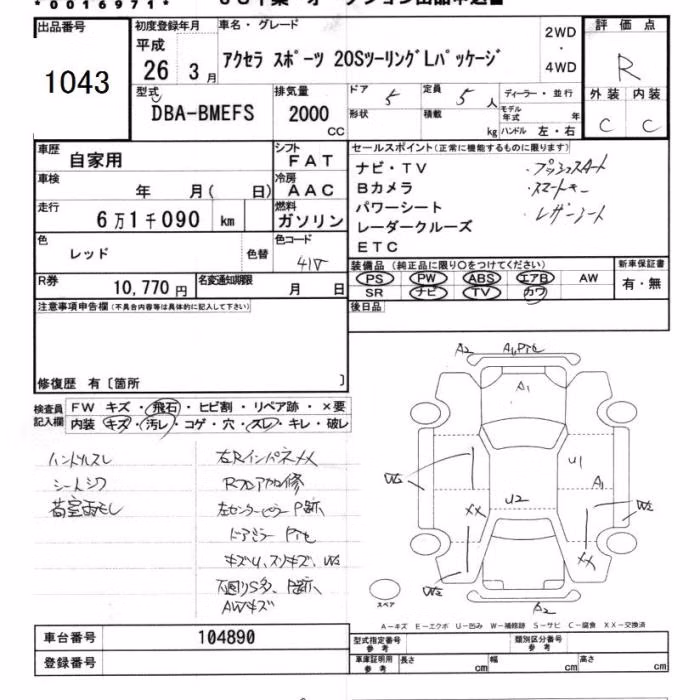 *0016971*
出品番号
1043
初度登録年月
平成
26 3月
車名・グレード
アクセラ スポーツ 20SツーリングLパッケージ
2WD
・
4WD
評価点
R
外装 内装
C C
型式
DBA-BMEFS
排気量
2000
CC
ドア 5
定員 5人
ディーラー・並行
形状
積載 kg
モデル年式 年
ハンドル 左・右
車歴
自家用
シフト
FAT
車検
年 月( 日)
冷房
AAC
走行
6万1千090 km
燃料
ガソリン
色
レッド
色替
色コード
41V
R券
10,770円
名変通知期限
月 日
セールスポイント(正常に機能するものに限ります)
ナビ・TV ・プッシュスタート
Bカメラ ・スマートキー
パワーシート ・レザーシート
レーダークルーズ
ETC
装備品(純正品に限り○をつけてください)
PS PW ABS エアB AW
SR ナビ TV カワ
新車保証書
有・無
後日品
注意事項申告欄(不具合内容等は具体的に記入して下さい)
修復歴 有〔箇所 〕
検査員記入欄
FW キズ・飛石・ヒビ割・リペア跡・×要
内装・キズ・汚レ・コゲ・穴・スレ・キレ・破レ
ハンドルスレ
シートシワ
荷室汚れ
右Rインパネ××
Rフロア修
左センターピラー P跡
ドアミラー
キズU、スリキズ、W2
下廻りS多、P跡
AWキズ
A2
A1
A1
U1
A1
U2
W2
W2
XX
XX
W2
A2
スペア
A−キズ E−エクボ U−凹み W−補修跡 S−サビ C−腐食 XX−交換済
車台番号
104890
登録番号
型式指定番号
参考
類別区分番号
参考
車庫証明用
参考
長さ cm
幅 cm
高さ cm